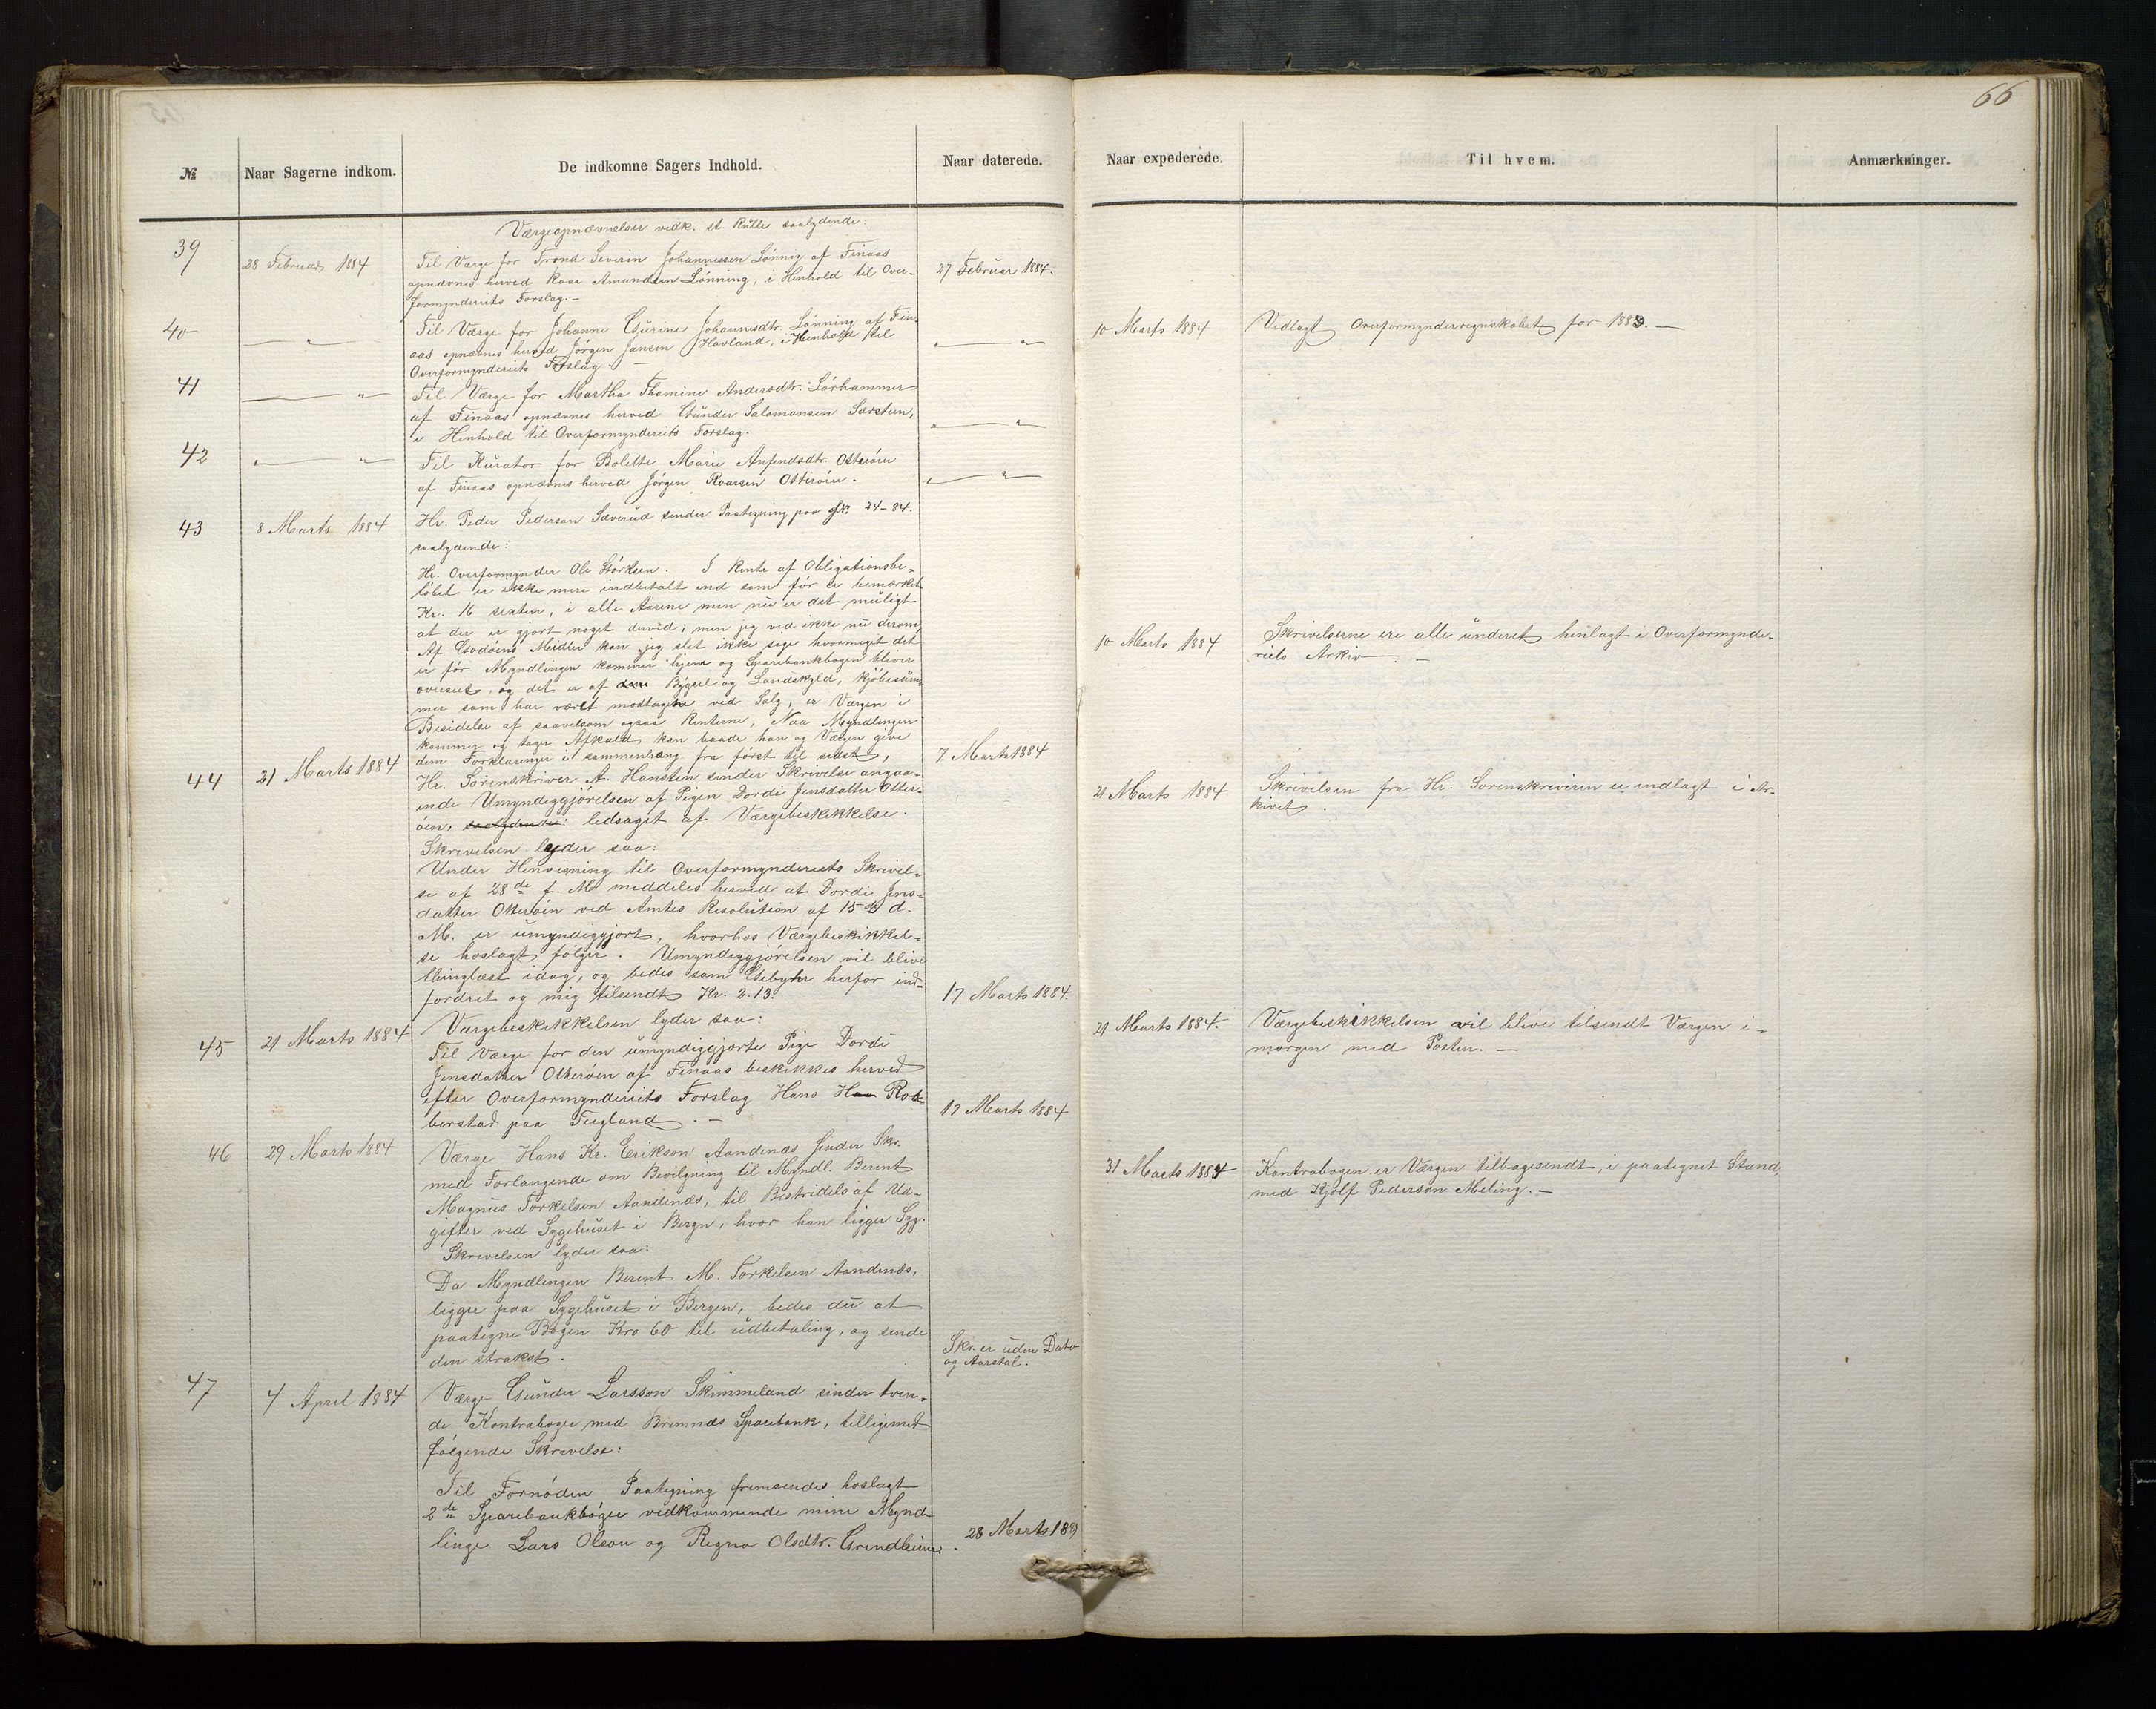 66
№ Naar Sagerne indkom. De indkomne Sagers Indhold. Naar daterede. Naar expederede. Til hvem. Anmærkninger.
Værgeopnævnelser vedk. st. Rülle saalydende:
39 28 Februar 1884 Til Værge for Trond Severin Johannessen Lönnig af Finaas 27 Februar 1884.
opnævnes herved Roar Amundsen Lönning, i Henhold til Over-
formynderiets Forslag. -
40 Til Værge for Johanne Gurine Johannesdtr. Lönning af Fin- 10 Marts 1884 Vedlagt Overformynderregnskabet for 1883. -
aas opnævnes herved Jörgen Jansen Hovland, i Henhold til
Overformynderiets Forslag. -
41 Til Værge for Martha Thomine Andersdtr. Lörhammer
af Finaas opnævnes herved Gunder Salomonsen Særsten,
i Henhold til Overformynderiets Forslag.
42 Til Kurator for Bolette Marie Anfendsdtr. Otteröen
af Finaas opnævnes herved Jörgen Roarsen Otteröen.
43 8 Marts 1884 Hr. Peder Pederson Sæverud sender Paategning paa 24-84.
saalydende:
Hr. Overformynder Ole Störksen. I Rente af Obligationsbe-
löbet er ikke mere indbetalt end som för er bemærket
Kr. 16 sexten, i alle Aarene men nu er det muligt
at der er gjort noget derved; men jeg ved ikke nu derom 10 Marts 1884 Skrivelserne ere alle underet henlagt i Overformynde-
Af Godöens Midler kan jeg slet ikke sige hvormeget det riets Arkiv. -
er för Myndlingen kommer hjem og Sparebankbogen bliver
overseet, og det er af Bygsel og Landskyld, kjöbesum-
mer som har været modtagne ved Salg, er Værgen i
Besidelse af saavelsom ogsaa Renterne, Naa Myndlingen
kommer og tager Afkald kan baade han og Værgen give
dem Forklaringer i sammenhæng fra först til sidst, 7 Marts 1884
44 21 Marts 1884 Hr. Sorenskriver A. Hansten sender Skrivelse angaa- 21 Marts 1884 Skrivelsen fra Hr. Sorenskriveren er indlagt i Ar-
ende Umyndiggjörelsen af Pigen Dordi Jensdatter Otter- kivet.
öen, saalydende: ledsaget af Værgebeskikkelse.
Skrivelsen lyder saa:
Under Henvisning til Overformynderiets Skrivel-
se af 28de f. M. meddeles herved at Dordi Jens-
datter Otteröen ved Amtes Resolution af 15de d.
M. er umyndiggjort, hvorhos Værgebeskikkel-
se hoslagt fölger. Umyndiggjörelsen vil blive
thinglæst idag, og bedes som Gebyhr herfor ind-
fordret og mig tilsendt Kr. 2.13. 17 Marts 1884.
45 21 Marts 1884 Værgebeskikkelsen lyder saa: 21 Marts 1884. Værgebeskikkelsen vil blive tilsendt Værgen i-
Til Værge for den umyndiggjorte Pige Dordi morgen med Posten. -
Jensdatter Otteröen af Finaas beskikkes herved
efter Overformynderiets Forslag Hans Rob-
berstad paa Fugland. - 17 Marts 1884
46 29 Marts 1884 Værge Hans Kr. Erikson Aandenæs sender Skr. 31 Marts 1884 Kontrabogen er Værgen tilbagesendt, i paategnet Stand,
med Forlangende om Bevilgning til Myndl. Berent med Kjölf Pederson Meling. -
Magnus Torkelsen Aandenæs, til Bestridels af Ud-
gifter ved Sygehuset i Bergn, hvor han ligger Syg.
Skrivelsen lyder saa:
Da Myndlingen Berent M. Torkelsen Aandenæs,
ligger paa Sygehuset i Bergen, bedes du at
paategne Bogen Kro 60 til udbetaling, og sende
den strakst. Skr. er uden Dato
og Aarstal.
47 4 April 1884 Værge Gunder Larsson Skimmeland sender tven-
de Kontraboger med Bremnæs Sparebank, tilligemed
fölgende Skrivelse:
Til Fornöden Paategning fremsendes hoslagt
2de Sparebankböger vedkommende mine Mynd-
linge Lars Olson og Regna Olsdtr. Grindheim. 28 Marts 188